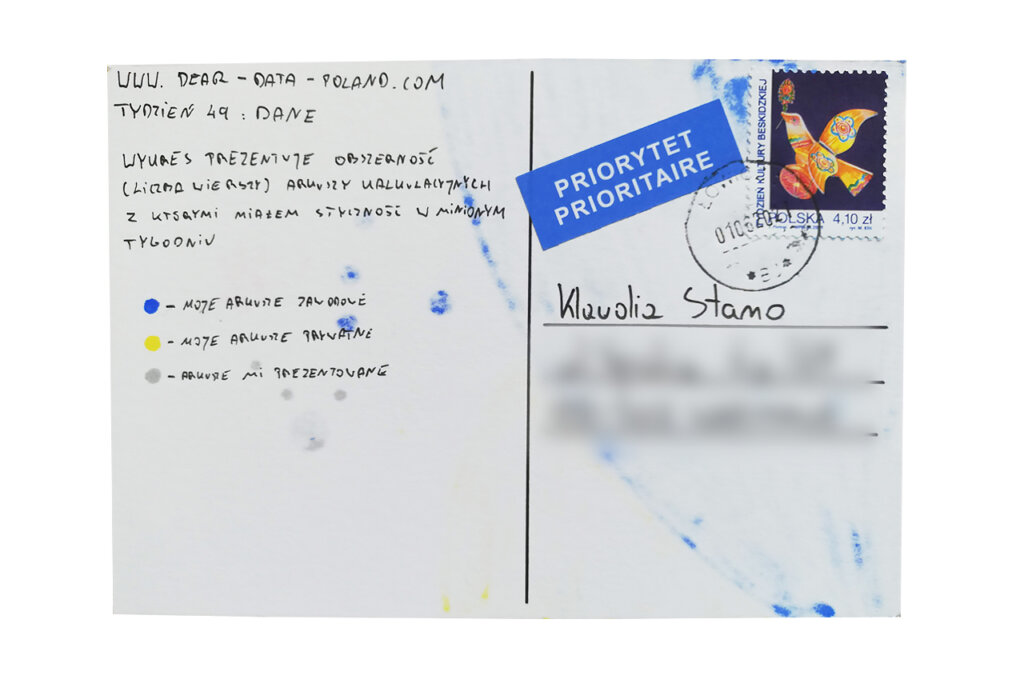 WWW. DEAR - DATA - POLAND.COM
TYDZIEŃ 49 : DANE
WYKRES PREZENTUJE OBSZERNOŚĆ
(LICZBA WIERSZY) ARKUSZY KALKULACYJNYCH
Z KTÓRYMI MIAŁEM STYCZNOŚĆ W MINIONYM
TYGODNIU
- MOJE ARKUSZE ZAWODOWE
- MOJE ARKUSZE PRYWATNE
- ARKUSZE MI PREZENTOWANE
PRIORYTET
PRIORITAIRE
TYDZIEŃ KULTURY BESKIDZKIEJ
POLSKA 4,10 zł
Klaudia Stano